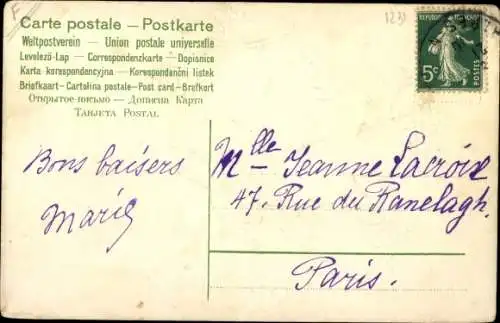 Carte postale — Postkarte
Weltpostverein — Union postale universelle
Levelező-Lap — Correspondenzkarte — Dopisnice
Karta korespondencyjna — Korespondenční lístek
Briefkaart — Cartolina postale — Post card — Brefkort
Открытое письмо — Дописна Карта
Tarjeta Postal
1231
REPUBLIQUE FRANÇAISE
5c
POSTES
Bons baisers
Marie
Mlle Jeanne Lacroix
47. Rue du Ranelagh.
Paris.